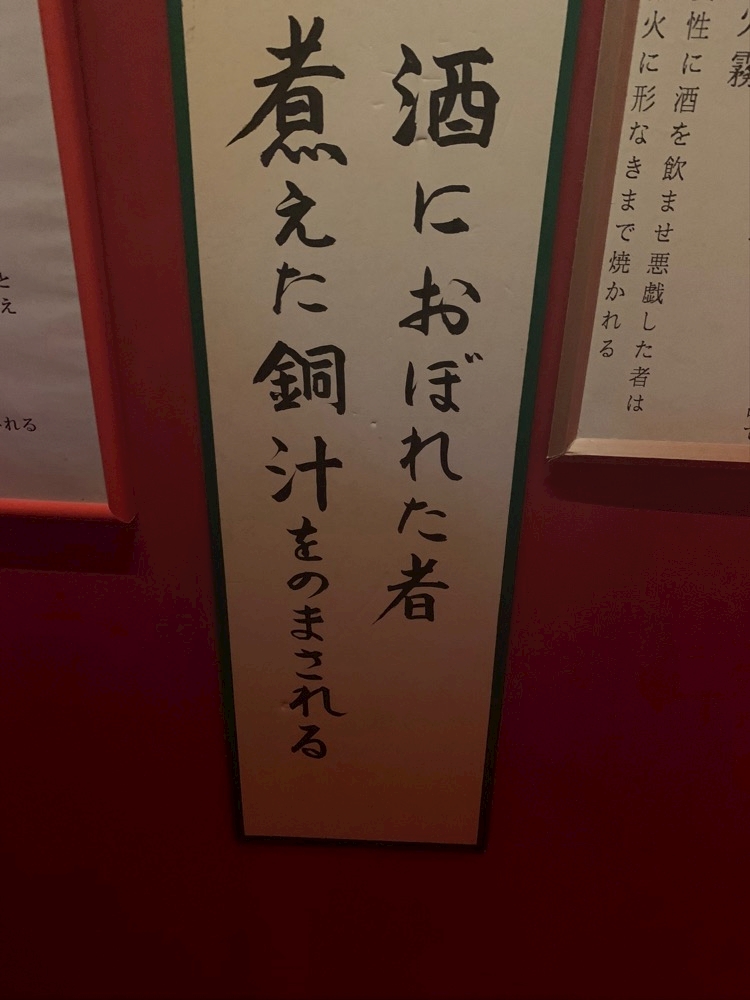 火霧
性に酒を飲ませ悪戯した者は
火に形なきまで焼かれる
酒におぼれた者
煮えた銅汁をのまされる
と
え
れる